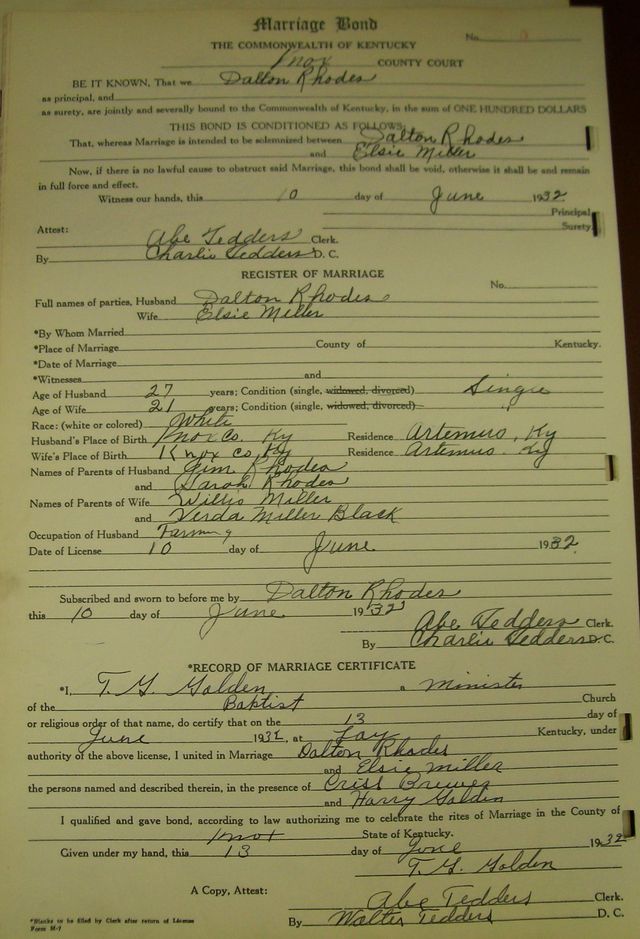 Marriage Bond
No.
THE COMMONWEALTH OF KENTUCKY
Knox COUNTY COURT
BE IT KNOWN, That we Dalton Rhodes
as principal, and
as surety, are jointly and severally bound to the Commonwealth of Kentucky, in the sum of ONE HUNDRED DOLLARS
THIS BOND IS CONDITIONED AS FOLLOWS:
That, whereas Marriage is intended to be solemnized between Dalton Rhodes
and Elsie Miller
Now, if there is no lawful cause to obstruct said Marriage, this bond shall be void, otherwise it shall be and remain
in full force and effect.
Witness our hands, this 10 day of June 1932
Principal
Surety
Attest:
Abe Tedders Clerk.
By Charlie Tedders D. C.
REGISTER OF MARRIAGE
No.
Full names of parties, Husband Dalton Rhodes
Wife Elsie Miller
*By Whom Married
*Place of Marriage County of Kentucky.
*Date of Marriage
*Witnesses and
Age of Husband 27 years; Condition (single, widowed, divorced) Single
Age of Wife 21 years; Condition (single, widowed, divorced) "
Race: (white or colored) White
Husband's Place of Birth Knox Co. Ky Residence Artemus, Ky
Wife's Place of Birth Knox Co, Ky Residence Artemus. Ky
Names of Parents of Husband Jim Rhodes
and Sarah Rhodes
Names of Parents of Wife Willis Miller
and Verda Miller Black
Occupation of Husband Farming
Date of License 10 day of June 1932
Subscribed and sworn to before me by Dalton Rhodes
this 10 day of June 1932
Abe Tedders Clerk.
By Charlie Tedders D. C.
*RECORD OF MARRIAGE CERTIFICATE
*I, T. G. Golden a minister
of the Baptist Church
or religious order of that name, do certify that on the 13 day of
June 1932, at Kentucky, under
authority of the above license, I united in Marriage Dalton Rhodes
and Elsie Miller
the persons named and described therein, in the presence of Criss Brewer
and Harry Golden
I qualified and gave bond, according to law authorizing me to celebrate the rites of Marriage in the County of
Knox State of Kentucky.
Given under my hand, this 13 day of June 1932
T. G. Golden
A Copy, Attest:
Abe Tedders Clerk.
By Walter Tedders D. C.
*Blanks to be filled by Clerk after return of License
Form M-7